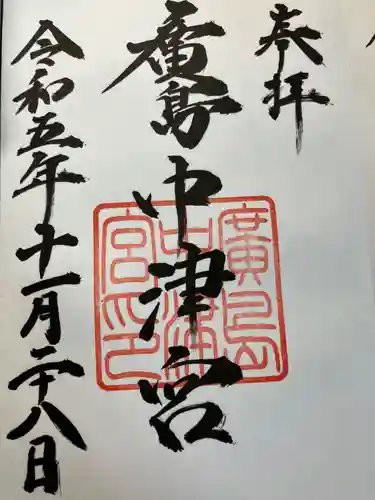 奉拝
廣島中津宮
廣島
中津
宮印
令和五年十一月二十八日